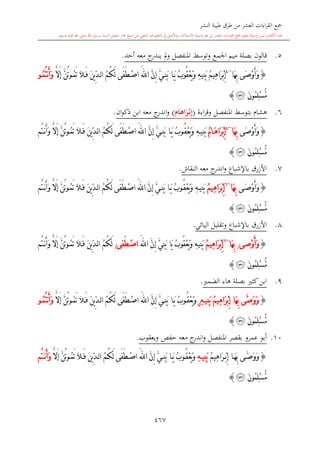 جمع القراءات العشر من طرق طيبة النشر
٥. قالون بصلة ميم الجمع وتوسط المنفصل ولم يندرج معه أحد.
﴿ وَأَوْصَىٰ بِهَآ إِبْرَٰهِيمُ بَنِيهِ وَيَعْقُوبُ يَٰبَنِيَّ إِنَّ ٱللَّهَ ٱصْطَفَىٰ لَكُمُ ٱلدِّينَ فَلَا تَمُوتُنَّ إِلَّا وَأَنتُمُو
مُّسْلِمُونَ ﴾
٦. هشام بتوسط المنفصل وقراءة (إِبْرَاهَامُ) واندرج معه ابن ذكوان.
﴿ وَأَوْصَىٰ بِهَآ إِبْرَاهَامُ بَنِيهِ وَيَعْقُوبُ يَٰبَنِيَّ إِنَّ ٱللَّهَ ٱصْطَفَىٰ لَكُمُ ٱلدِّينَ فَلَا تَمُوتُنَّ إِلَّا وَأَنتُم
مُّسْلِمُونَ ﴾
٧. الأزرق بالإشباع واندرج معه النقاش.
﴿ وَأَوْصَىٰ بِهَآ إِبْرَٰهِيمُ بَنِيهِ وَيَعْقُوبُ يَٰبَنِيَّ إِنَّ ٱللَّهَ ٱصْطَفَىٰ لَكُمُ ٱلدِّينَ فَلَا تَمُوتُنَّ إِلَّا وَأَنتُم
مُّسْلِمُونَ ﴾
٨. الأزرق بالإشباع وتقليل اليائي.
﴿ وَأَوْصَىٰ بِهَآ إِبْرَٰهِيمُ بَنِيهِ وَيَعْقُوبُ يَٰبَنِيَّ إِنَّ ٱللَّهَ ٱصْطَفَىٰ لَكُمُ ٱلدِّينَ فَلَا تَمُوتُنَّ إِلَّا وَأَنتُم
مُّسْلِمُونَ ﴾
٩. ابن كثير بصلة هاء الضمير.
﴿ وَوَصَّىٰ بِهَآ إِبْرَٰهِيمُ بَنِيهِۦ وَيَعْقُوبُ يَٰبَنِيَّ إِنَّ ٱللَّهَ ٱصْطَفَىٰ لَكُمُ ٱلدِّينَ فَلَا تَمُوتُنَّ إِلَّا وَأَنتُمُو
مُّسْلِمُونَ ﴾
١٠. أبو عمرو بقصر المنفصل واندرج معه حفص ويعقوب.
﴿ وَوَصَّىٰ بِهَآ إِبْرَٰهِيمُ بَنِيهِ وَيَعْقُوبُ يَٰبَنِيَّ إِنَّ ٱللَّهَ ٱصْطَفَىٰ لَكُمُ ٱلدِّينَ فَلَا تَمُوتُنَّ إِلَّا وَأَنتُم
مُّسْلِمُونَ ﴾
٤٦٧